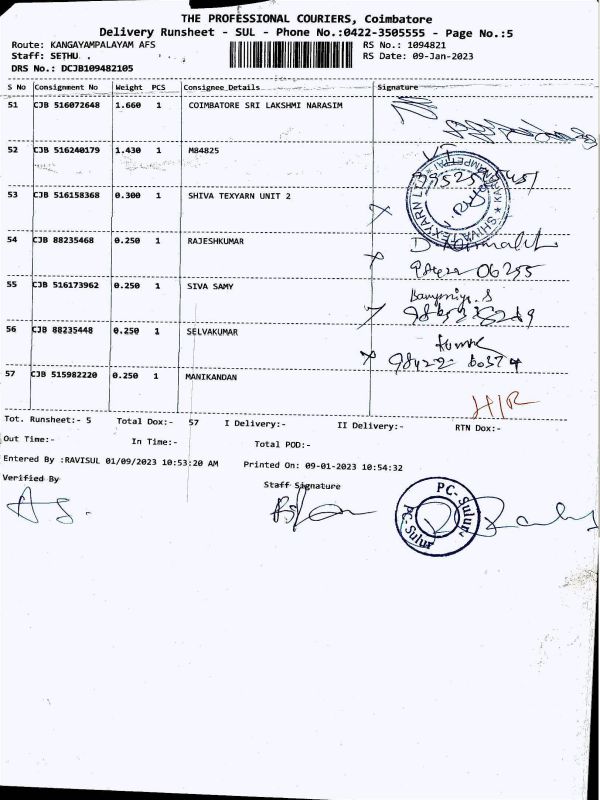 THE PROFESSIONAL COURIERS, Coimbatore
Delivery Runsheet - SUL - Phone No.:0422-3505555 - Page No.:5
Route: KANGAYAMPALAYAM AFS RS No.: 1094821
Staff: SETHU . RS Date: 09-Jan-2023
DRS No.: DCJB109482105
S No Consignment No Weight PCS Consignee Details Signature
51 CJB 516072648 1.660 1 COIMBATORE SRI LAKSHMI NARASIM
52 CJB 516240179 1.430 1 M84825
53 CJB 516158368 0.300 1 SHIVA TEXYARN UNIT 2
SHIVA TEXYARN LTD
54 CJB 88235468 0.250 1 RAJESHKUMAR
06255
55 CJB 516173962 0.250 1 SIVA SAMY
56 CJB 88235448 0.250 1 SELVAKUMAR
57 CJB 515982220 0.250 1 MANIKANDAN
H/R
Tot. Runsheet:- 5 Total Dox:- 57 I Delivery:- II Delivery:- RTN Dox:-
Out Time:- In Time:- Total POD:-
Entered By :RAVISUL 01/09/2023 10:53:20 AM Printed On: 09-01-2023 10:54:32
Verified By Staff Signature
PC-Sulur
PC-Sulur